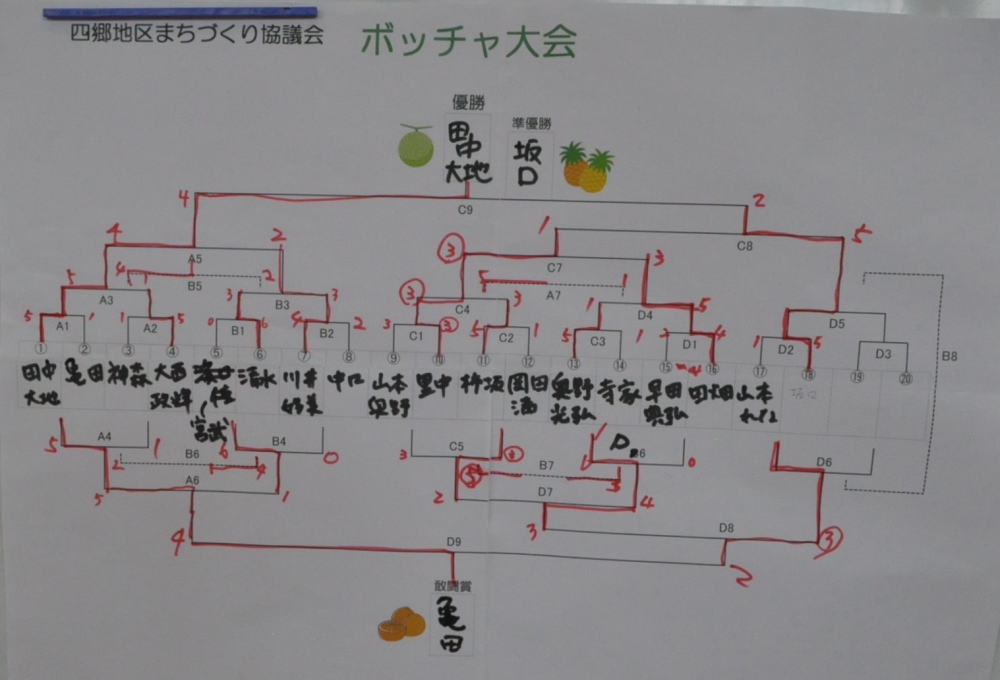 四郷地区まちづくり協議会
ボッチャ大会
優勝
田中
大地
準優勝
坂口
4
C9
2
4
2
1
C8
5
A5
③
C7
3
5
4
B5
2
③
5
A7
1
A3
3
B3
3
C4
3
1
D4
5
D5
5
A1
1
1
A2
5
0
B1
6
B2
2
3
C1
③
5
C2
1
5
C3
1
2
D1
4
1
D2
5
D3
B8
① ② ③ ④ ⑤ ⑥ ⑦ ⑧ ⑨ ⑩ ⑪ ⑫ ⑬ ⑭ ⑮ ⑯ ⑰ ⑱ ⑲ ⑳
田中
大地
亀田
神森
大西
政輝
宮武
清水
川井
中口
山本
奥野
里中
岡田
奥野
光弘
寺家
早田
田畑
山本
坂口
5
A4
1
6
B4
0
3
C5
D
6
0
D6
2
B6
4
③
B7
3
5
A6
1
2
D7
4
4
3
D8
③
D9
2
敢闘賞
亀田